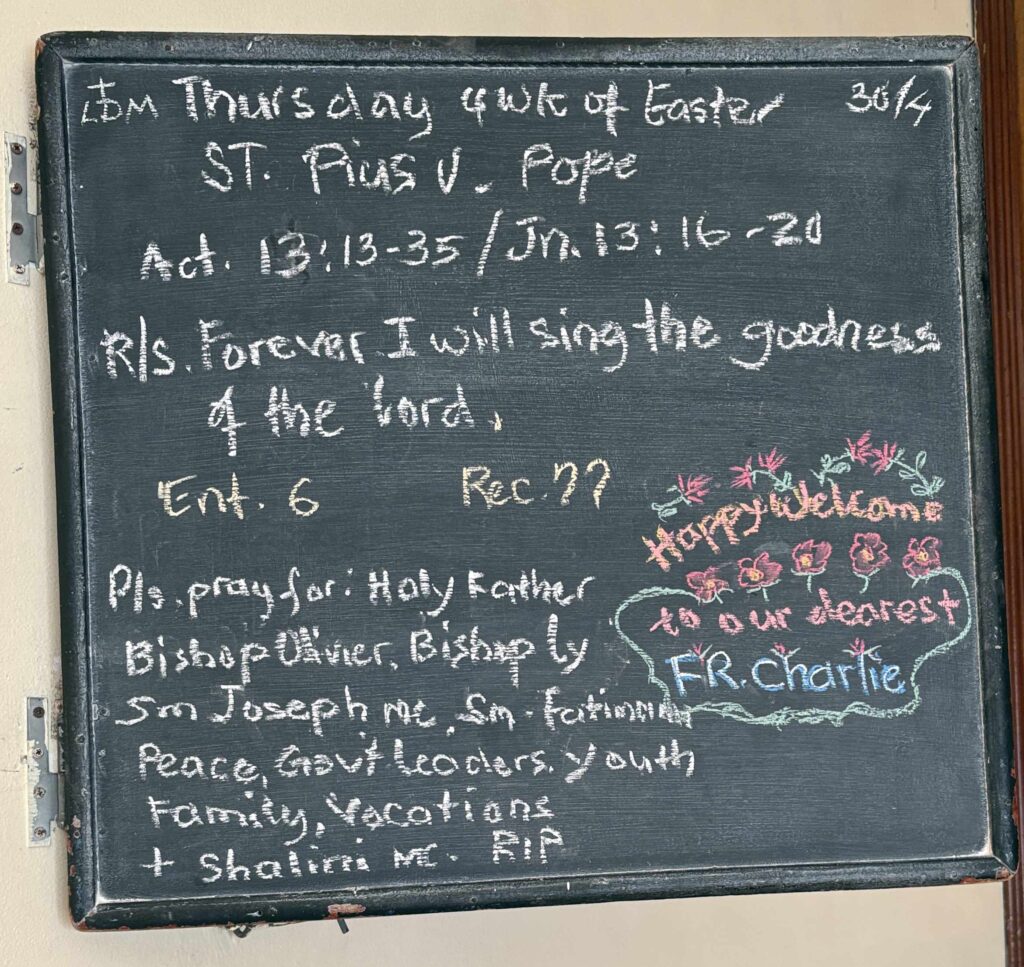 LDM Thursday 4 wk of Easter 30/4
ST. Pius V. Pope
Act. 13:13-35 / Jn. 13:16-20
R/s. Forever I will sing the goodness
of the Lord.
Ent. 6 Rec. ??
Happy Welcome
to our dearest
FR. Charlie
Pls. pray for: Holy Father
Bishop Olivier, Bishop Ly
Sm Joseph MC, Sm. Fatima
Peace, Govt leaders, youth
Family, Vocations
+ Shalini MC. RIP